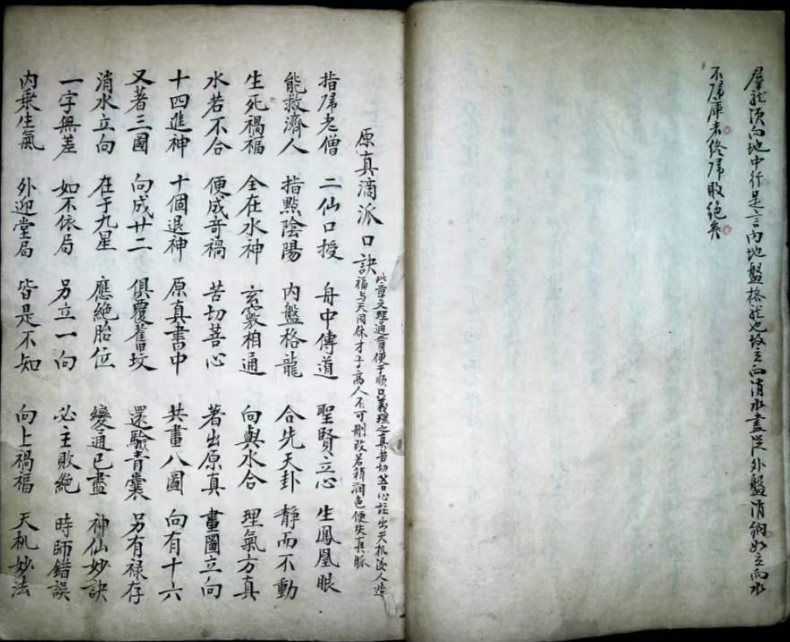 羣龍須向地中行是言內地盤格龍也故立向消水盡從外盤消納如立向水
不歸庫者終歸敗絕矣
原真滴派口訣
此章之理通貫便于順口義理之真苦切菩心註出天机法人造
福与天同休才子高人不可刪改若稍潤色便失真脈
指歸老僧 二仙口授 舟中傳道 聖賢立心 生鳳凰眼
能救濟人 指點陰陽 內盤格龍 合先天卦 靜而不動
生死禍福 全在水神 玄竅相通 向與水合 理氣方真
水若不合 便成奇禍 苦切菩心 著出原真 畫圖立向
十四進神 十個退神 原真書中 共畫八圖 向有十六
又著三國 向成廿二 俱覆舊坟 還驗青囊 另有禄存
消水立向 在于九星 應絕胎位 變通已盡 神仙妙訣
一字無差 如不依局 另立一向 必主敗絕 時師錯誤
內乘生氣 外迎堂局 皆是不知 向上禍福 天机妙法